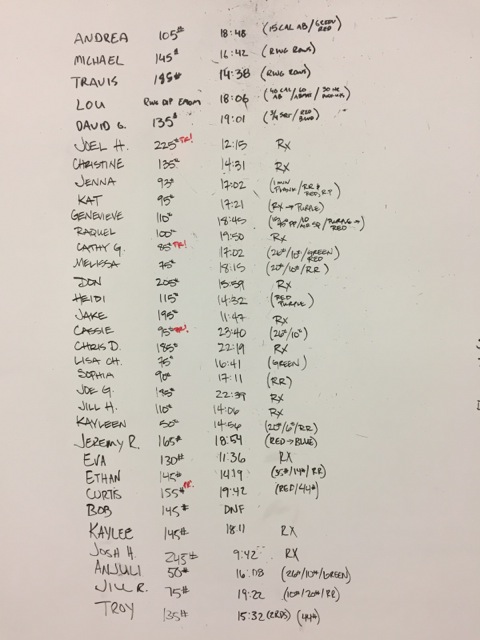 ANDREA 105# 18:48 (15 CAL AB/GREEN RED)
MICHAEL 145# 16:42 (RING ROWS)
TRAVIS 185# 14:38 (RING ROWS)
LOU RING DIP 18:06
DAVID G. 135# 19:01 (3/4 RED BAND)
JOEL H. 225# PR! 12:15 RX
CHRISTINE 135# 14:31 RX
JENNA 93# 17:02 (1 MIN PLANK/RR
KAT 95# 17:21 (RX → PURPLE)
GENEVIEVE 110# 18:45 PURPLE → RED)
RAQUEL 100# 19:50 RX
CATHY G. 85# PR! 17:02 (26#/10#/GREEN RED)
MELISSA 75# 18:15 (20#/10#/RR)
DON 205# 15:59 RX
HEIDI 115# 14:32 (RED PURPLE)
JAKE 195# 11:47 RX
CASSIE 95# PR! 23:40 (26#/10#)
CHRIS D. 185# 22:19 RX
LISA CH. 75# 16:41 (GREEN)
SOPHIA 90# 17:11 (RR)
JOE G. 185# 22:39 RX
JILL H. 110# 14:06 RX
KAYLEEN 50# 14:56 (20#/6#/RR)
JEREMY R. 165# 18:54 (RED → BLUE)
EVA 130# 11:36 RX
ETHAN 145# 14:19 (35#/14#/RR)
CURTIS 155# PR. 19:42 (RED/44#)
BOB 145# DNF
KAYLEE 145# 18:11 RX
JOSH H. 245# 9:42 RX
ANJULI 50# 16:08 (26#/10#/GREEN)
JILL R. 75# 19:22 (10#/20#/RR)
TROY 135# 15:32 (2RDS) (44#)